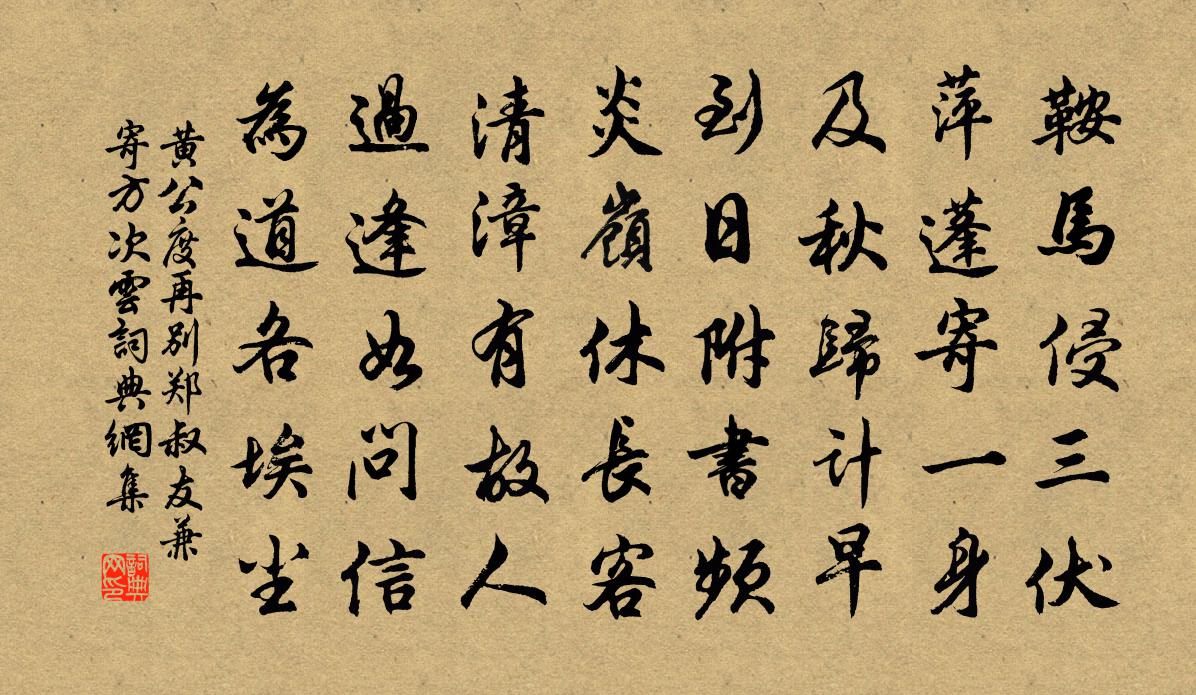 鞍馬侵三伏
萍蓬寄一身
及秋歸計早
到日附書頻
炎嶺休長客
清漳有故人
過逢如問信
為道各埃尘
黄公度再别郑叔友兼
寄方次雲詞典網集
詞典网印